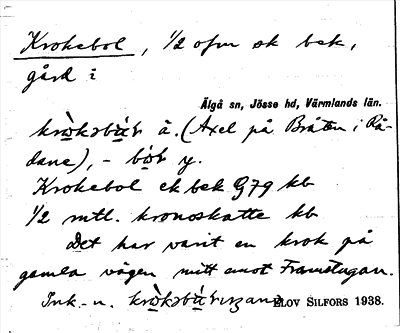 Krokebol, 1/2 ofm sk bek,
gård i
Älgå sn, Jösse hd, Värmlands län.
å. (Axel på Bråten i Rå-
dane), - y.
Krokebol ek bek G79 kb
1/2 mtl. kronoskatte kb
Det har varit en krok på
gamla vägen mitt emot Framstugan.
Ink.-n.
ELOV SILFORS 1938.